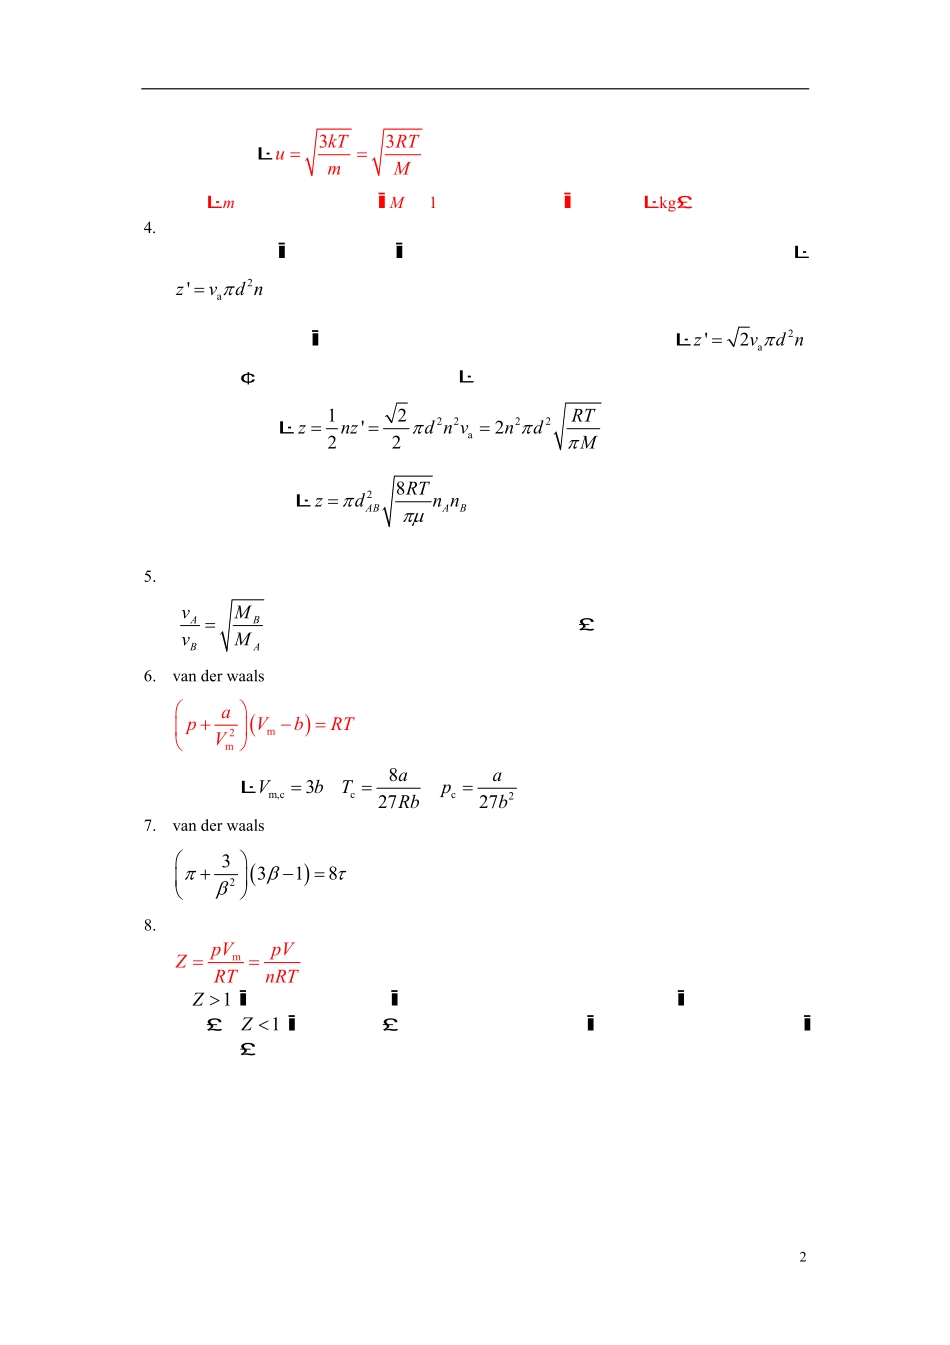 u = √(3kT/m) = √(3RT/M)
m M 1 kg£
4.
z' = v_a π d² n
z' = √2 v_a π d² n
¢
z = 1/2 nz' = √2/2 π d² n² v_a = 2n² π d² √(RT/πM)
z = π d_AB² √(8RT/πμ) n_A n_B
5.
v_A/v_B = √(M_B/M_A) £
6. van der waals
(p + a/V_m²)(V_m − b) = RT
V_m,c = 3b T_c = 8a/27Rb p_c = a/27b²
7. van der waals
(π + 3/β²)(3β − 1) = 8τ
8.
Z = pV_m/RT = pV/nRT
Z > 1
£ Z < 1 £
£
2